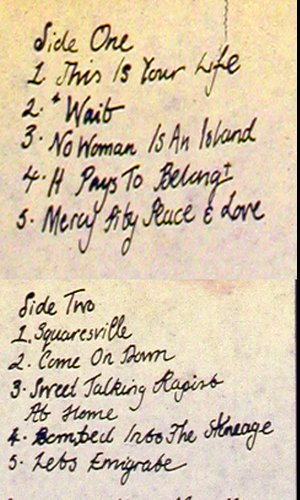 Side One
1 This Is Your Life
2. * Wait
3. No Woman Is An Island
4. It Pays To Belong‡
5. Mercy Pity Peace & Love
Side Two
1. Squaresville
2. Come On Down
3. Sweet Talking Rapist
At Home
4. Bombed Into The Stoneage
5. Lets Emigrate